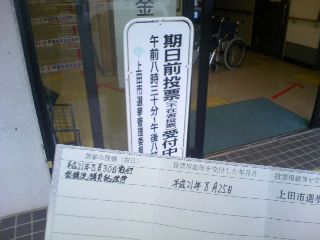 期日前投票(不在者投票)受付中
午前八時三十分~午後八
上田市選挙管理委
金
選挙の種類(期日)
平成21年8月30日執行
投票用紙等を交付した年月日
平成21年8月25日
投票用紙等を交
上田市選挙